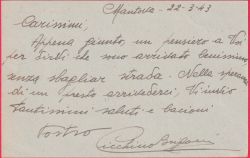 Mantova - 22-3-43
Carissimi,
Appena giunto, un pensiero a Voi
per dirvi che sono arrivato benissimo
senza sbagliar strada. Nella speranza
di un presto arrivederci, Vi invio
tantissimi saluti e bacioni
Vostro